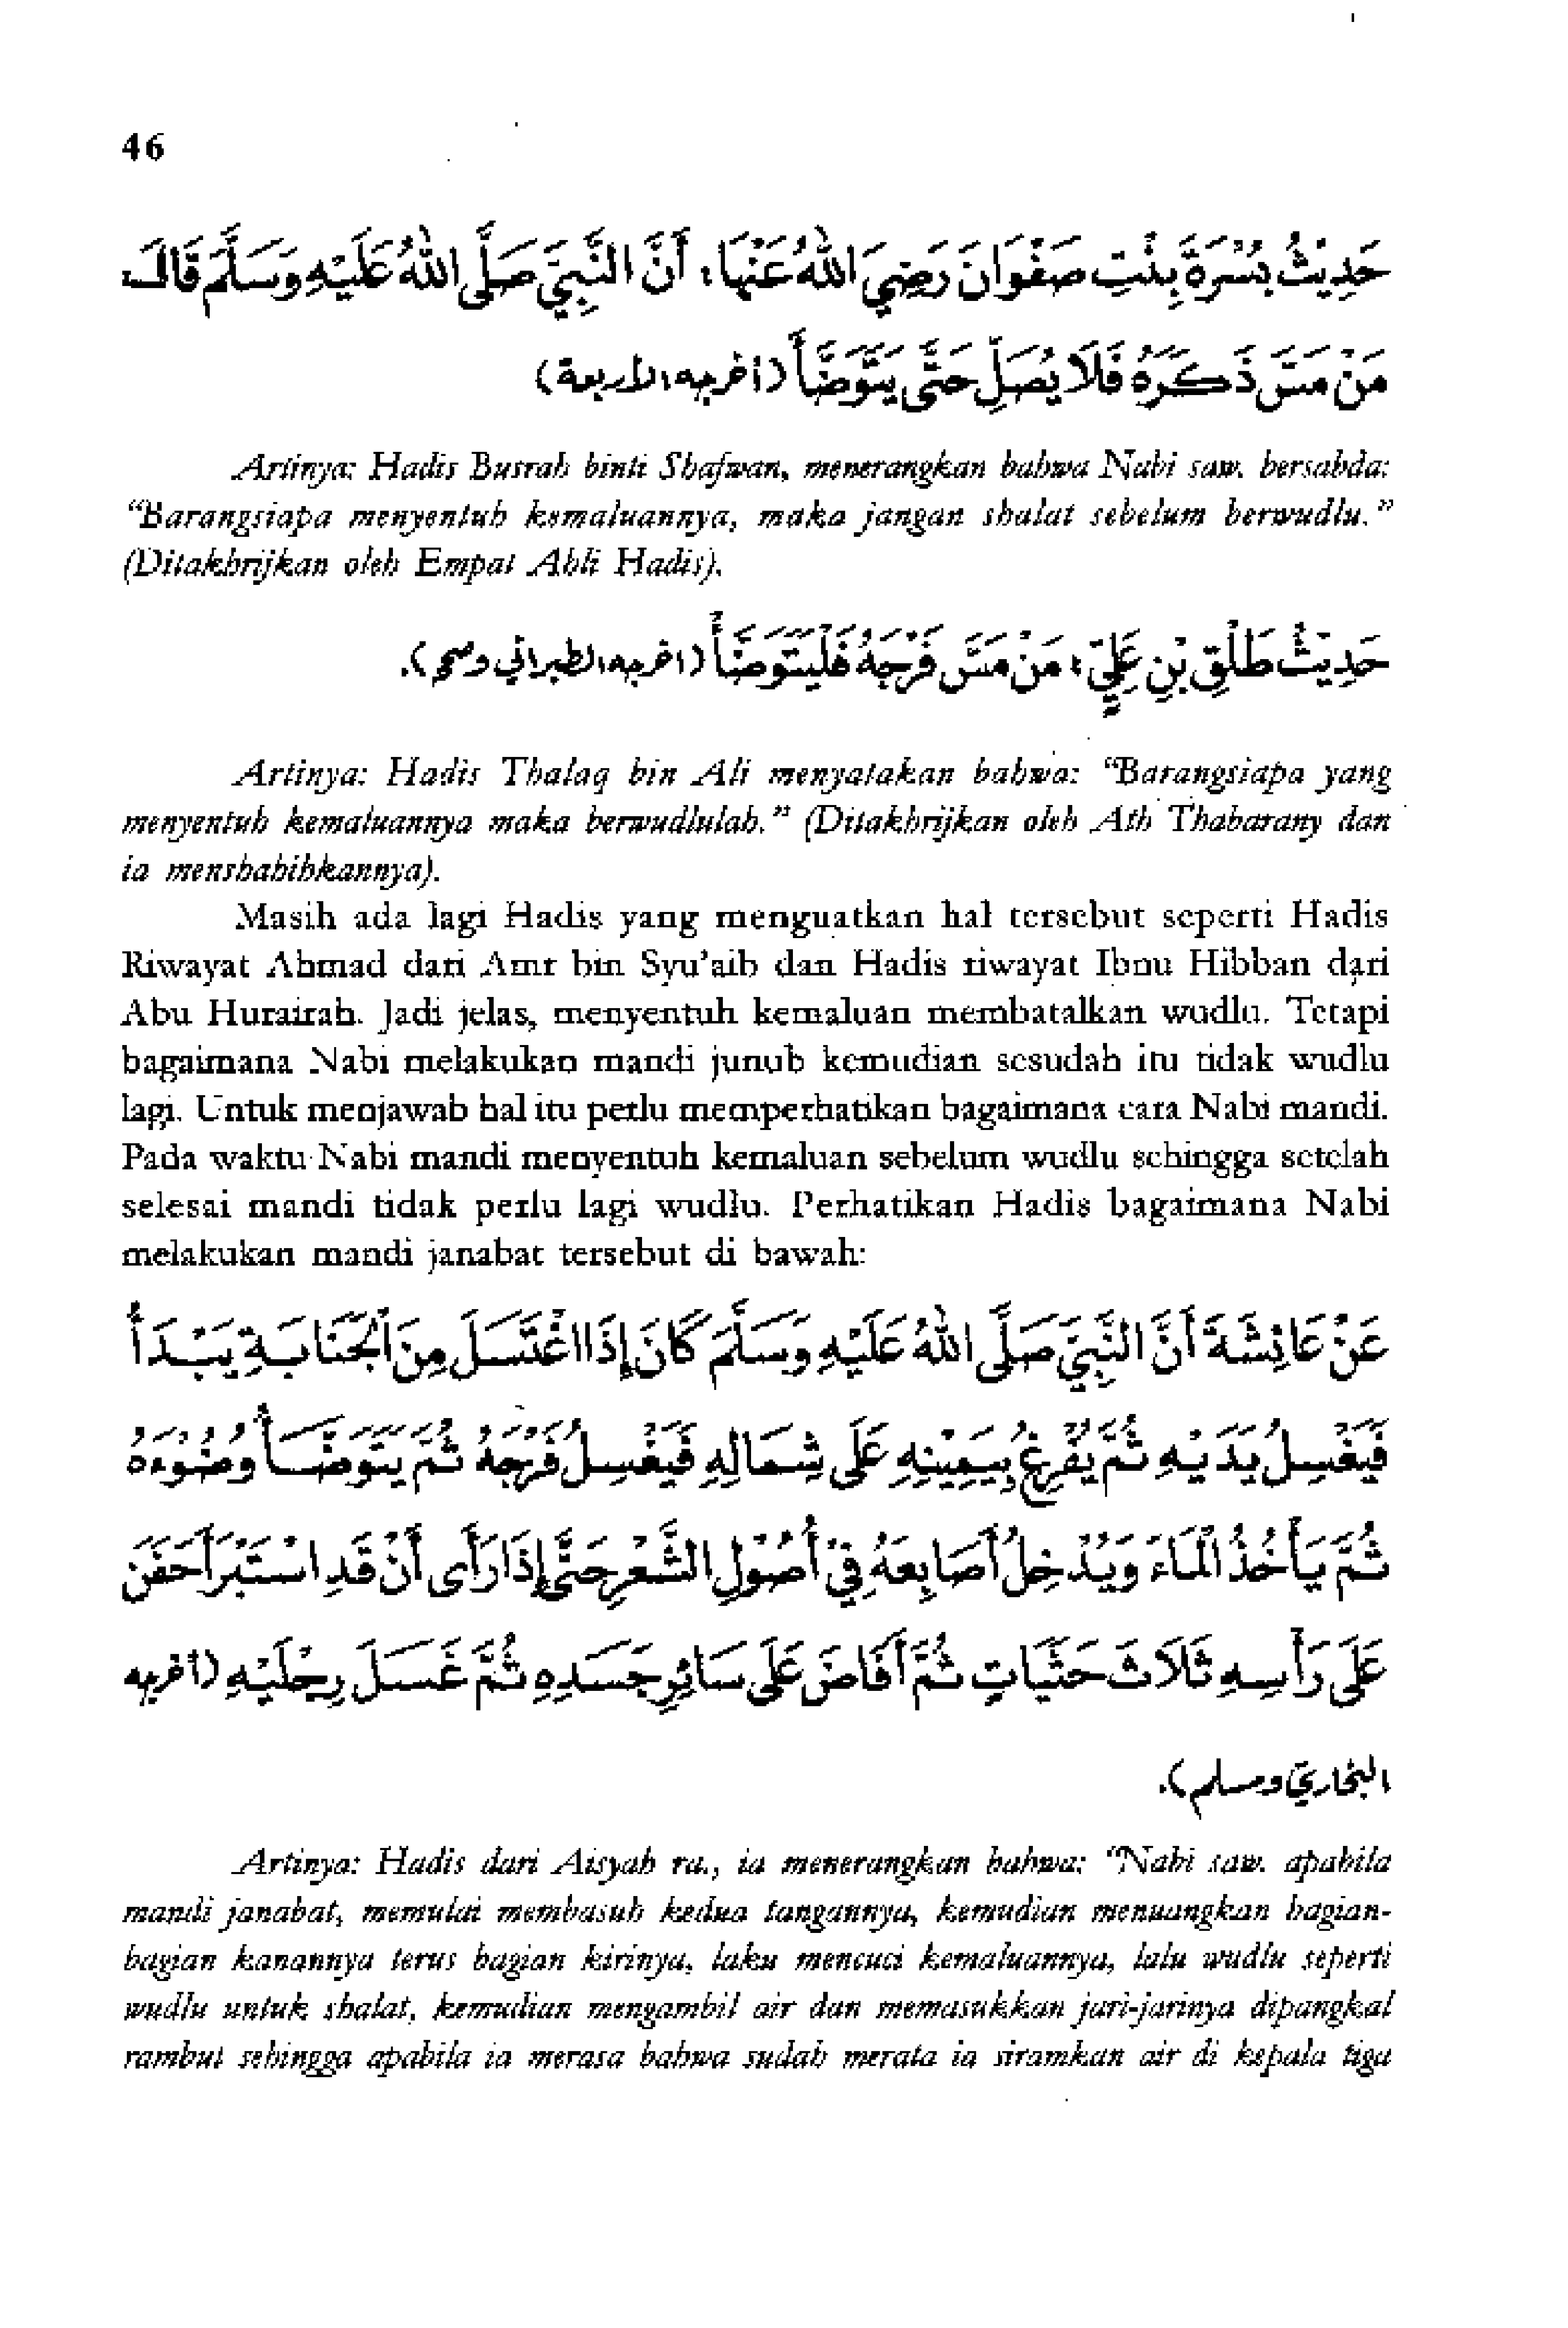 46
حَدِيْثُ بُسْرَةَ بِنْتِ صَفْوَانَ رَضِيَ اللهُ عَنْهَا، أَنَّ النَّبِيَّ صَلَّى اللهُ عَلَيْهِ وَسَلَّمَ قَالَ
مَنْ مَسَّ ذَكَرَهُ فَلَا يُصَلِّ حَتَّى يَتَوَضَّأَ (أخرجه الأربعة)
Artinya: Hadis Busrah binti Shafwan, menerangkan bahwa Nabi saw. bersabda:
“Barangsiapa menyentuh kemaluannya, maka jangan shalat sebelum berwudlu.”
(Ditakhrijkan oleh Empat Ahli Hadis).
حَدِيْثُ طَلْقِ بْنِ عَلِيٍّ، مَنْ مَسَّ فَرْجَهُ فَلْيَتَوَضَّأْ (اخرجه الطبراني وصححه).
Artinya: Hadis Thalaq bin Ali menyatakan bahwa: “Barangsiapa yang
menyentuh kemaluannya maka berwudlulah.” (Ditakhrijkan oleh Ath Thabarany dan
ia menshahihkannya).
Masih ada lagi Hadis yang menguatkan hal tersebut seperti Hadis
Riwayat Ahmad dari Amr bin Syu’aib dan Hadis riwayat Ibnu Hibban dari
Abu Hurairah. Jadi jelas, menyentuh kemaluan membatalkan wudlu. Tetapi
bagaimana Nabi melakukan mandi junub kemudian sesudah itu tidak wudlu
lagi. Untuk menjawab hal itu perlu memperhatikan bagaimana cara Nabi mandi.
Pada waktu Nabi mandi menyentuh kemaluan sebelum wudlu sehingga setelah
selesai mandi tidak perlu lagi wudlu. Perhatikan Hadis bagaimana Nabi
melakukan mandi janabat tersebut di bawah:
عَنْ عَائِشَةَ أَنَّ النَّبِيَّ صَلَّى اللهُ عَلَيْهِ وَسَلَّمَ كَانَ إِذَا اغْتَسَلَ مِنَ الْجَنَابَةِ يَبْدَأُ
فَيَغْسِلُ يَدَيْهِ ثُمَّ يُفْرِغُ بِيَمِيْنِهِ عَلَى شِمَالِهِ فَيَغْسِلُ فَرْجَهُ ثُمَّ يَتَوَضَّأُ وُضُوْءَهُ
ثُمَّ يَأْخُذُ الْمَاءَ وَيُدْخِلُ أَصَابِعَهُ فِيْ أُصُوْلِ الشَّعْرِ حَتَّى إِذَا رَأَى أَنْ قَدِ اسْتَبْرَأَ حَفَنَ
عَلَى رَأْسِهِ ثَلَاثَ حَثَيَاتٍ ثُمَّ أَفَاضَ عَلَى سَائِرِ جَسَدِهِ ثُمَّ غَسَلَ رِجْلَيْهِ (أخرجه
البخاريّ ومسلم).
Artinya: Hadis dari Aisyah ra., ia menerangkan bahwa: “Nabi saw. apabila
mandi janabat, memulai membasuh kedua tangannya, kemudian menuangkan bagian-
bagian kanannya terus bagian kirinya, laku mencuci kemaluannya, lalu wudlu seperti
wudlu untuk shalat, kemudian mengambil air dan memasukkan jari-jarinya dipangkal
rambut sehingga apabila ia merasa bahwa sudah merata ia siramkan air di kepala tiga